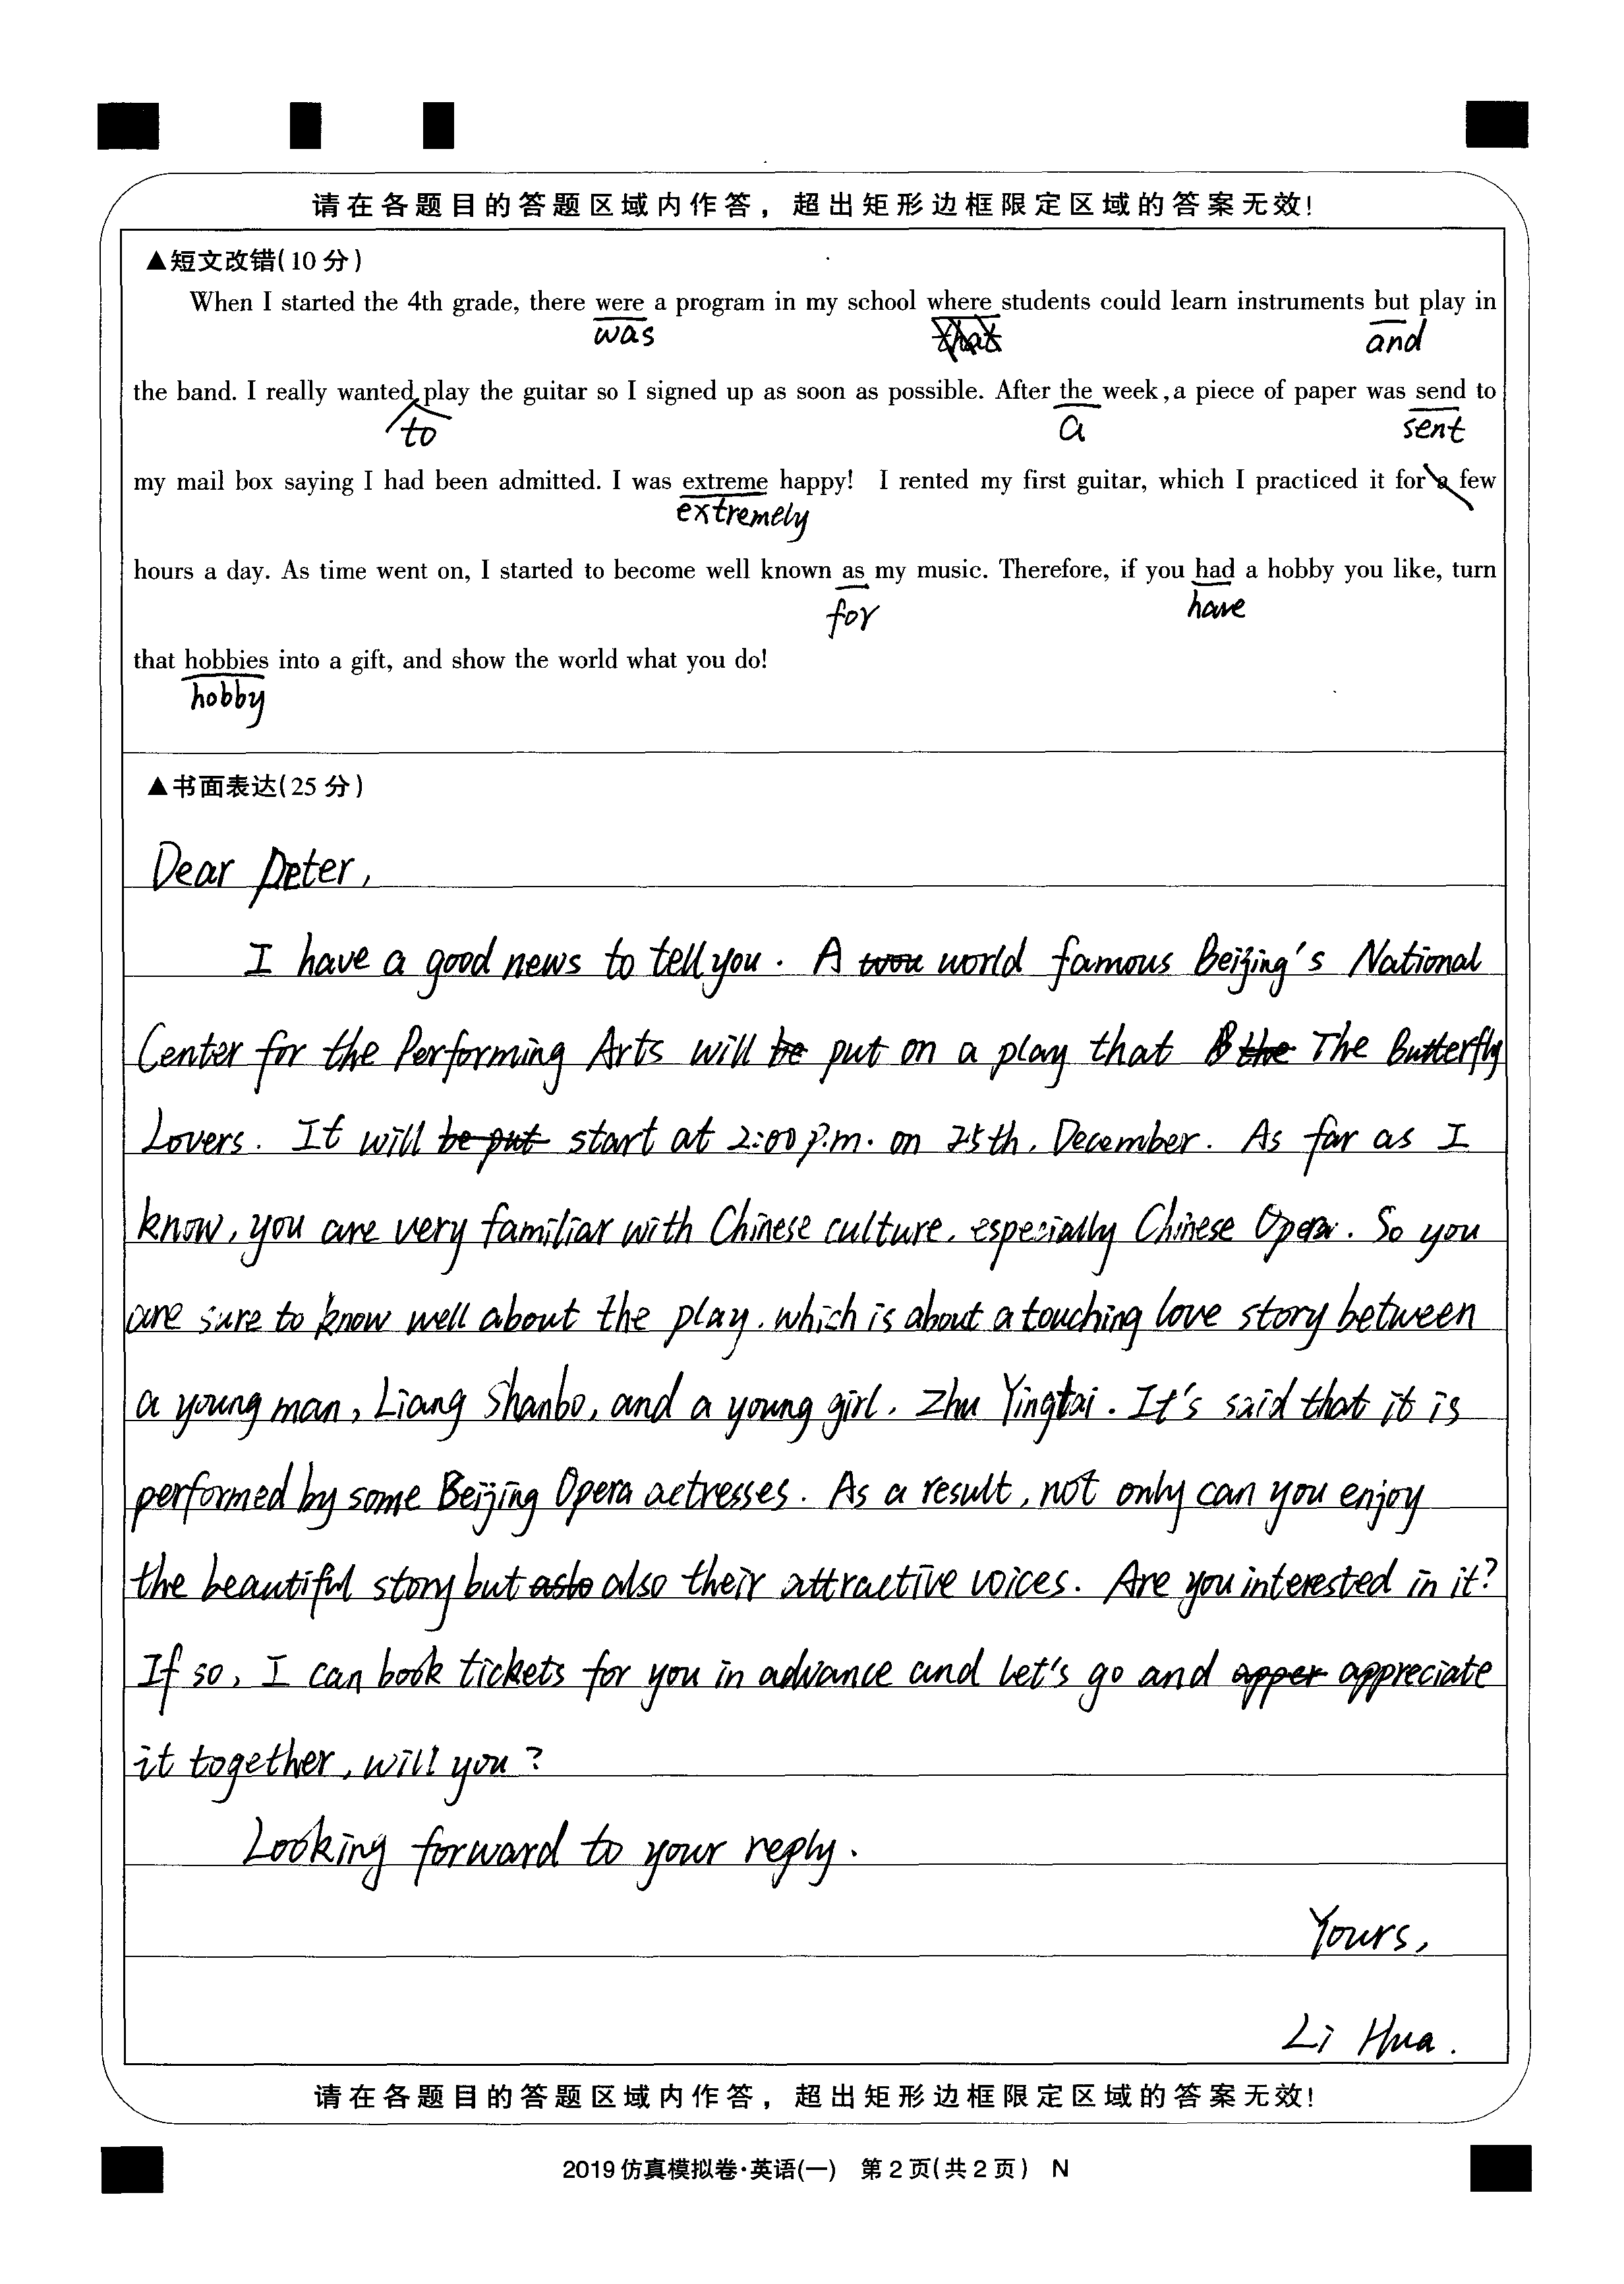 请在各题目的答题区域内作答，超出矩形边框限定区域的答案无效!
▲短文改错(10分)
When I started the 4th grade, there were a program in my school where students could learn instruments but play in
was that and
the band. I really wanted play the guitar so I signed up as soon as possible. After the week, a piece of paper was send to
to a sent
my mail box saying I had been admitted. I was extreme happy! I rented my first guitar, which I practiced it for a few
extremely
hours a day. As time went on, I started to become well known as my music. Therefore, if you had a hobby you like, turn
for have
that hobbies into a gift, and show the world what you do!
hobby
▲书面表达(25分)
Dear Peter,
I have a good news to tell you. A wou world famous Beijing's National
Center for the Performing Arts will be put on a play that B the The Butterfly
Lovers. It will be put start at 2:00 p.m. on 25th, December. As far as I
know, you are very familiar with Chinese culture, especially Chinese Opera. So you
are sure to know well about the play, which is about a touching love story between
a young man, Liang Shanbo, and a young girl, Zhu Yingtai. It's said that it is
performed by some Beijing Opera actresses. As a result, not only can you enjoy
the beautiful story but aslo also their attractive voices. Are you interested in it?
If so, I can book tickets for you in advance and let's go and apper appreciate
it together, will you?
Looking forward to your reply.
Yours,
Li Hua.
请在各题目的答题区域内作答，超出矩形边框限定区域的答案无效!
2019仿真模拟卷·英语(一) 第2页(共2页) N